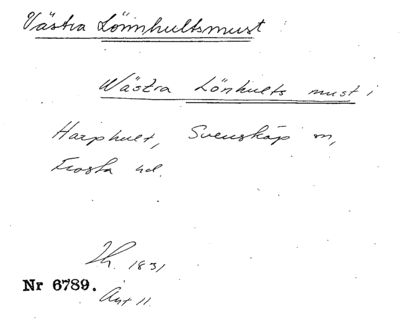 Västra Lönnhultsmust
Wästra Lönhults must i
Harphult, Svensköp sn,
Frosta hd.
Lh. 1831
Nr 6789.
Akt 11